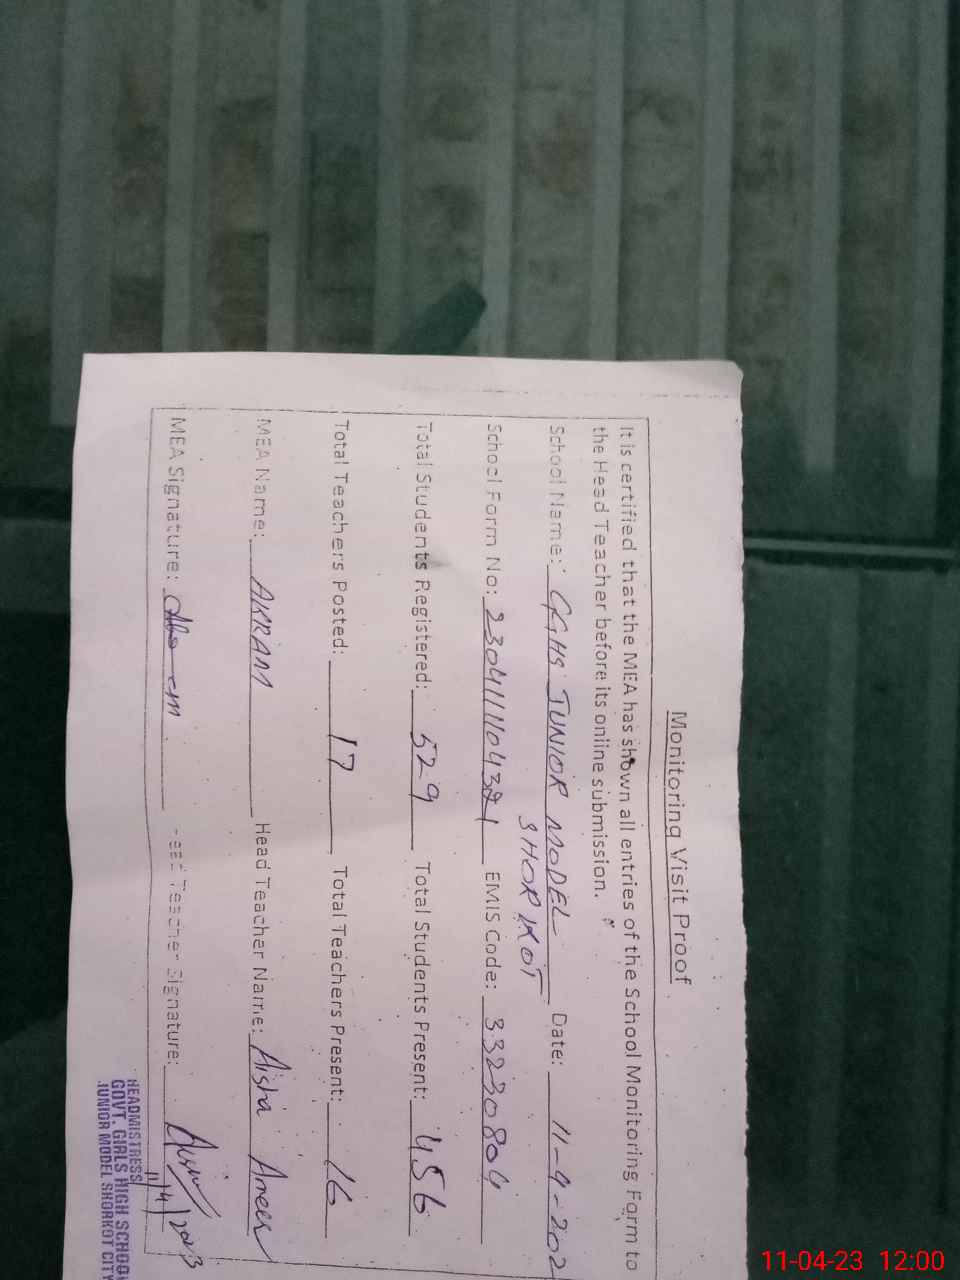 Monitoring Visit Proof
It is certified that the MEA has shown all entries of the School Monitoring Form to
the Head Teacher before its online submission.
School Name: GGHS JUNIOR MODEL Date: 11-4-202
SHORKOT
School Form No: EMIS Code: 33230804
Total Students Registered: 529 Total Students Present: 456
Total Teachers Posted: 17 Total Teachers Present: 16
MEA Name: AKRAM Head Teacher Name: Aisha Ameer
MEA Signature: Head Teacher Signature:
11/4/2023
HEADMISTRESS
GOVT. GIRLS HIGH SCHOOL
JUNIOR MODEL SHORKOT CITY
11-04-23 12:00